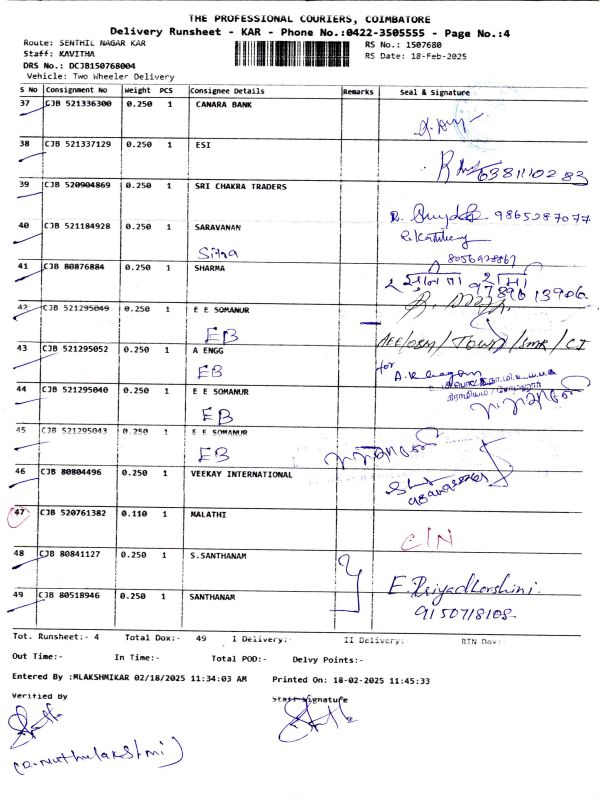 THE PROFESSIONAL COURIERS, COIMBATORE
Delivery Runsheet - KAR - Phone No.:0422-3505555 - Page No.:4
Route: SENTHIL NAGAR KAR
RS No.: 1507680
Staff: KAVITHA
RS Date: 18-Feb-2025
DRS No.: DCJB150768004
Vehicle: Two Wheeler Delivery
S No Consignment No Weight PCS Consignee Details Remarks Seal & Signature
37 CJB 521336300 0.250 1 CANARA BANK
38 CJB 521337129 0.250 1 ESI
6381110283
39 CJB 520904869 0.250 1 SRI CHAKRA TRADERS
9865287077
40 CJB 521184928 0.250 1 SARAVANAN
Sitra
41 CJB 80876884 0.250 1 SHARMA
42 CJB 521295049 0.250 1 E E SOMANUR
EB
43 CJB 521295052 0.250 1 A ENGG
EB
for
44 CJB 521295040 0.250 1 E E SOMANUR
EB
45 CJB 521295043 0.250 1 E E SOMANUR
EB
46 CJB 80804496 0.250 1 VEEKAY INTERNATIONAL
47 CJB 520761382 0.110 1 MALATHI
C/N
48 CJB 80841127 0.250 1 S.SANTHANAM
E. Priyadharshini.
49 CJB 80518946 0.250 1 SANTHANAM
9150718108
Tot. Runsheet:- 4 Total Dox:- 49 I Delivery:- II Delivery: RTN Dox:-
Out Time:- In Time:- Total POD:- Delvy Points:-
Entered By :MLAKSHMIKAR 02/18/2025 11:34:03 AM Printed On: 18-02-2025 11:45:33
Verified By
Staff Signature